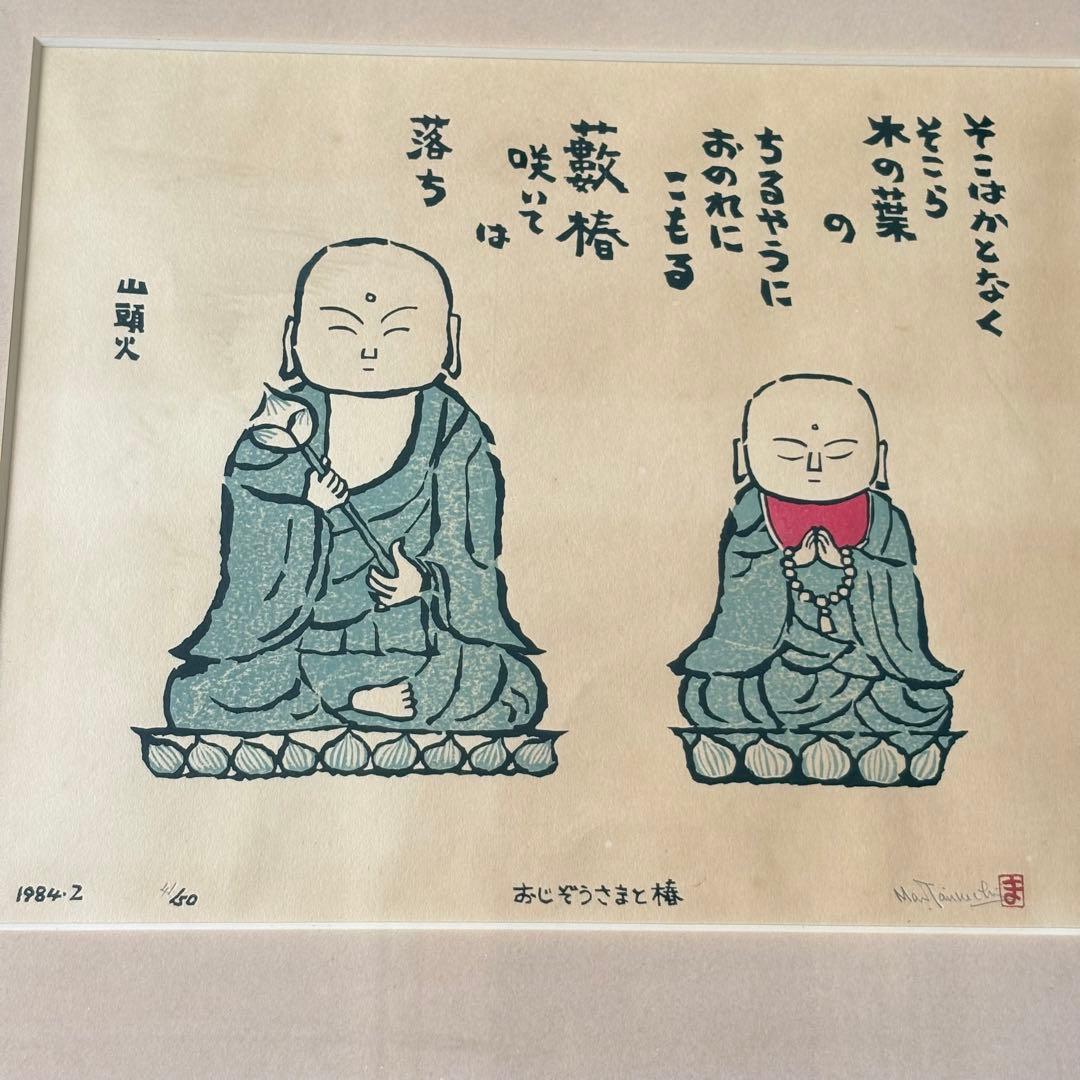 そこはかとなく
そこら
木の葉
の
ちるやうに
おのれに
こもる
藪椿
咲いて
は
落ち
山頭火
1984.2
/50
おじぞうさまと椿
ま